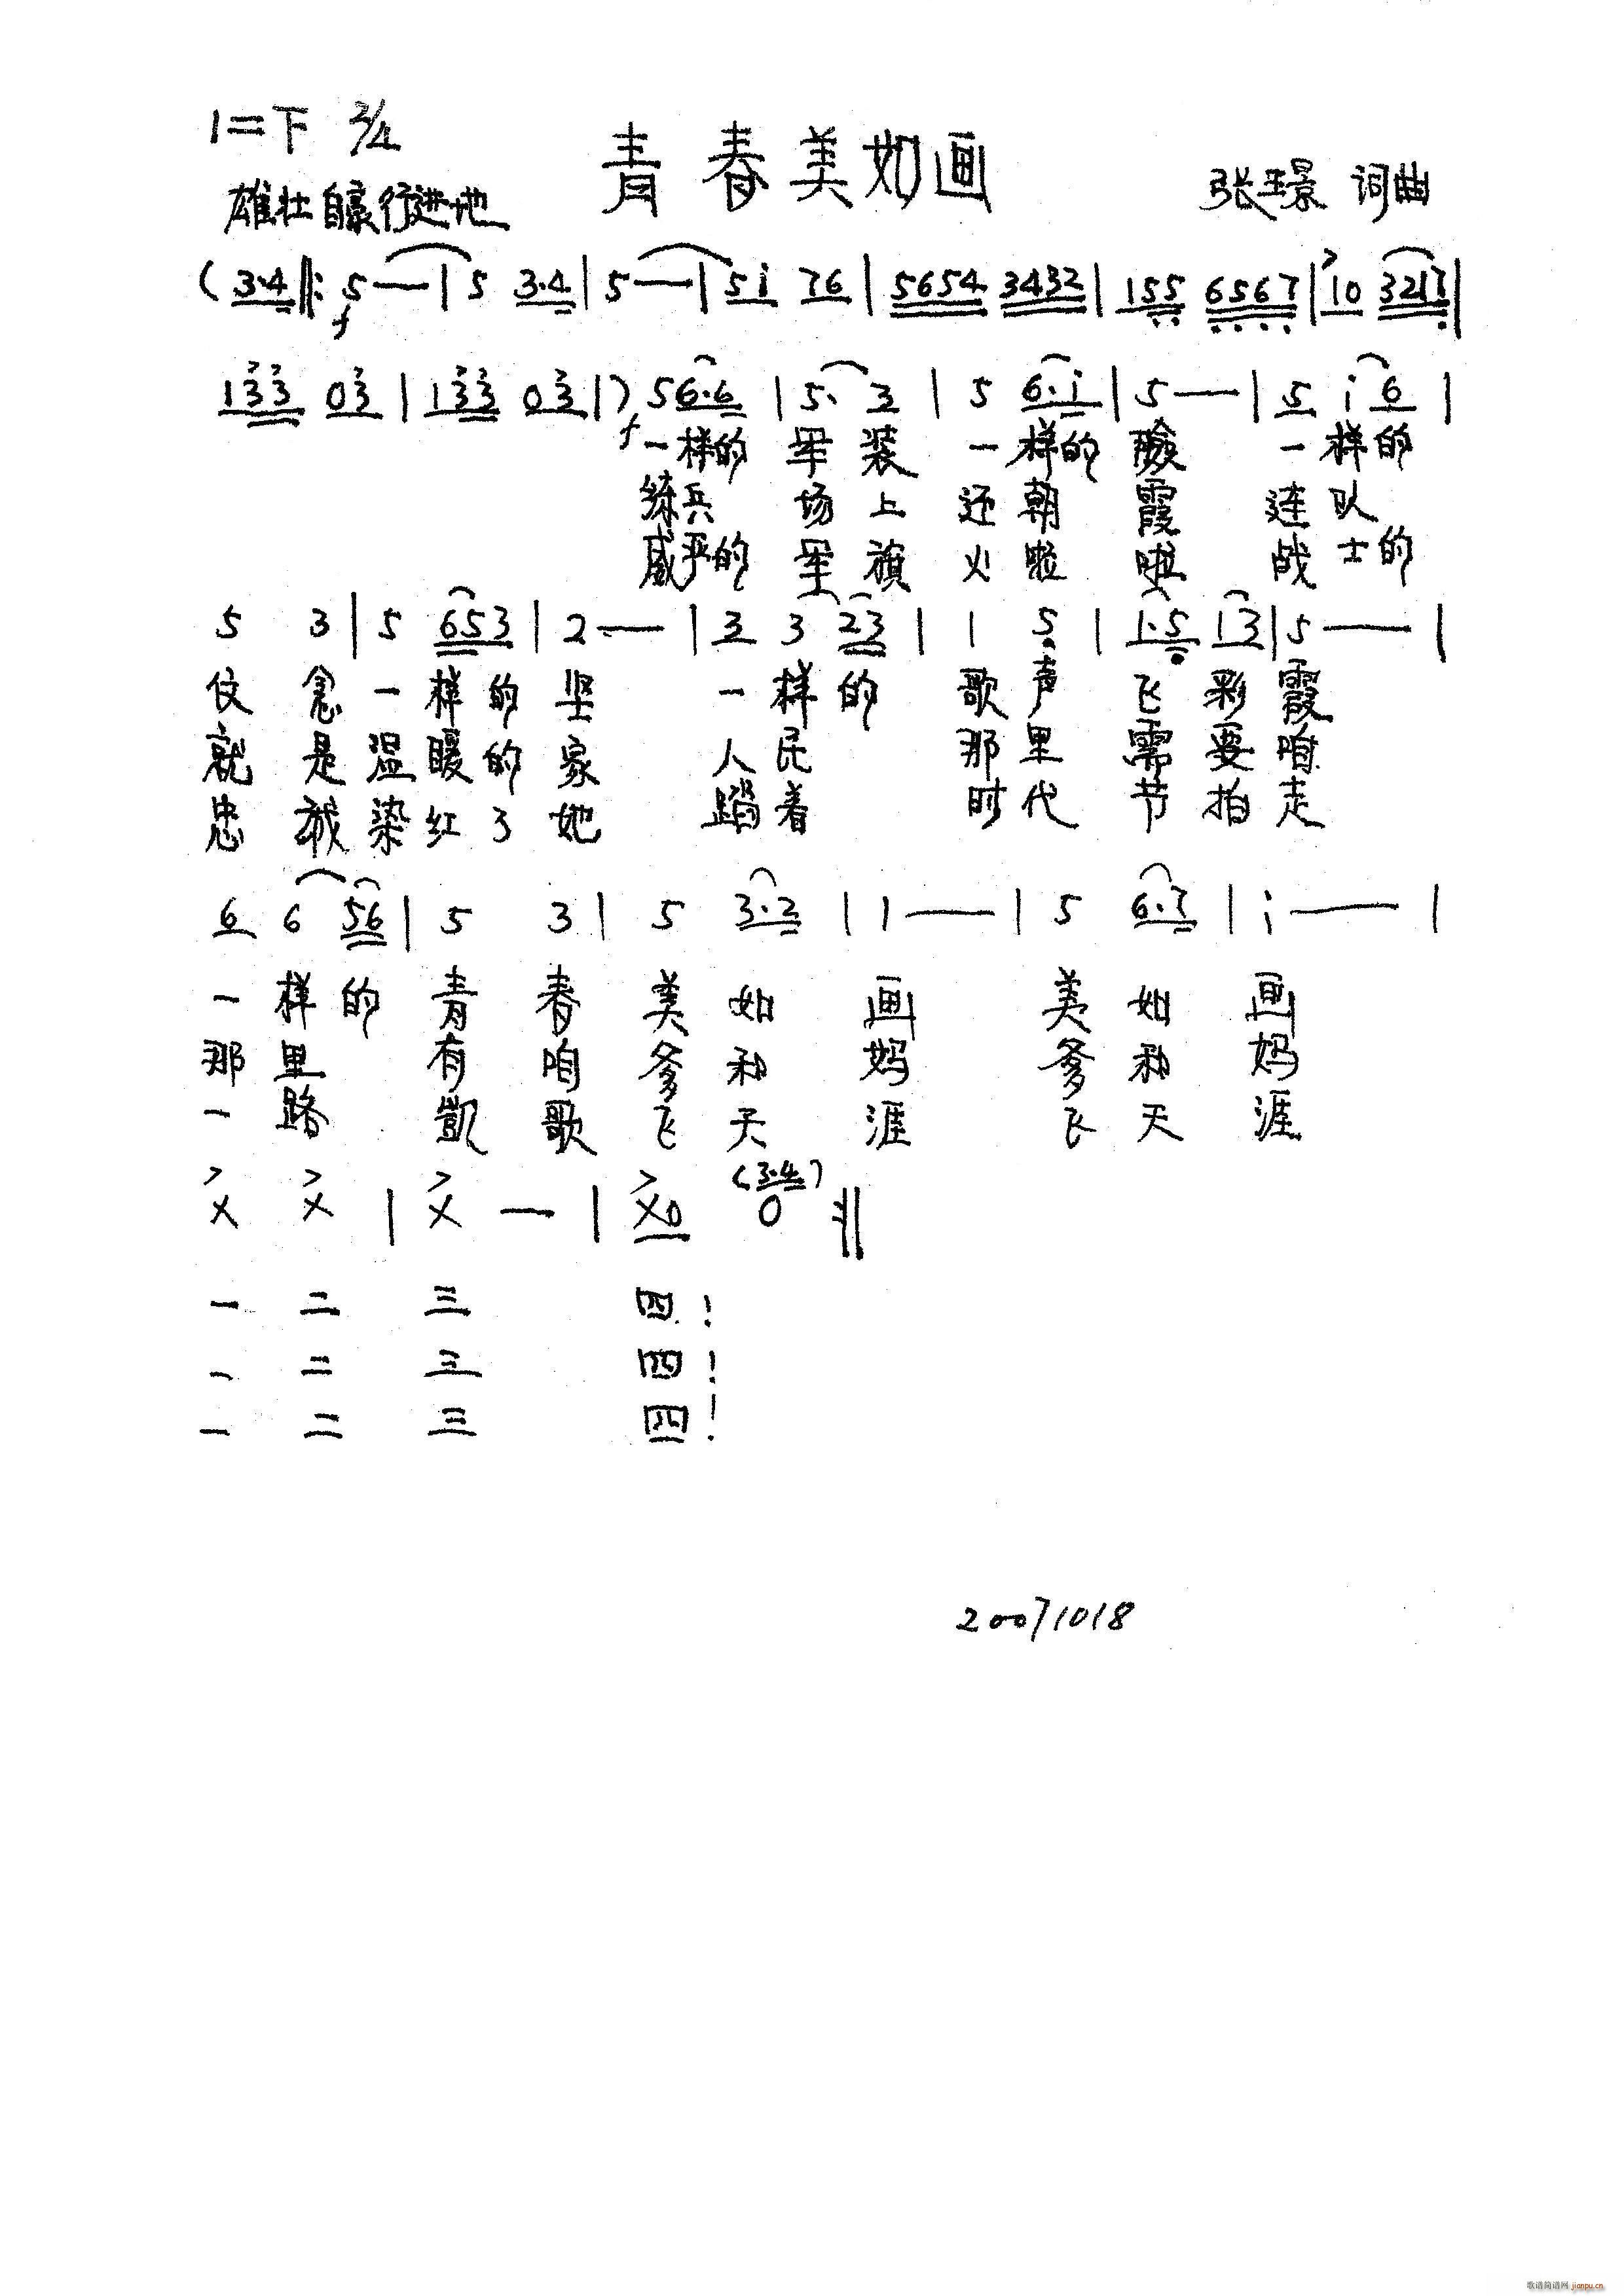 1=下 2/4
青春美如画
张璟 词曲
雄壮自豪行进地
( 3·4 ‖: 5 — | 5 3·4 | 5 — | 5 i 7 6 | 5654 3432 | 155 6567 | 10 3217 |
f
133 03 | 133 03 | ) 5 6·6 | 5· 3 | 5 6·i | 5 — | 5 i 6 |
f 一样的 军装 一样的 脸 一样的
练兵 场上 还朝 霞 连队
威严的 军旗 火啦 啦 战士的
5 3 | 5 653 | 2 — | 3 3 23 | 1 5 | 1·5 13 | 5 — |
信念 一样的 坚 一样的 歌声 飞彩 霞
就是 温暖的 家 人民 那里 需要 咱
忠诚 染红了 她 踏着 时代 节拍 走
6 6 56 | 5 3 | 5 3·2 | 1 — | 5 6·7 | i — |
一样的 青春 美如 画 美如 画
那里 有咱 爹和 妈 爹和 妈
一路 凯歌 飞天 涯 飞天 涯
X X | X — | X0 0 (3·4) :‖
一 二 三 四!
一 二 三 四!
一 二 三 四!
20071018
歌谱简谱网 jianpu.cn